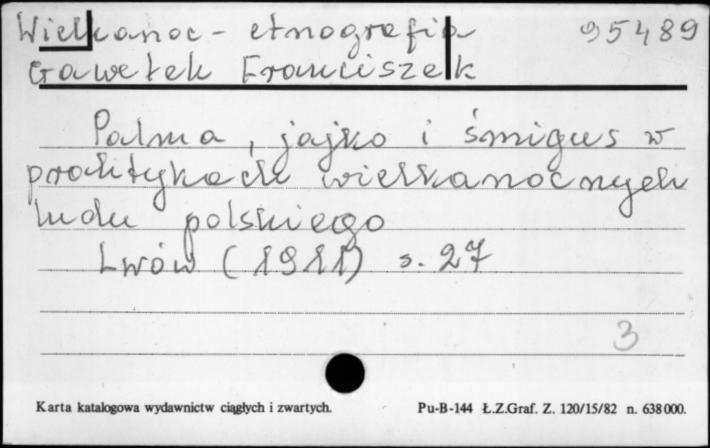 Wielkanoc - etnografia 95489
Gawełek Franciszek
Palma, jajko i śmigus w
praktykach wielkanocnych
ludu polskiego
Lwów (1911) s. 27
3
Karta katalogowa wydawnictw ciągłych i zwartych. Pu-B-144 Ł.Z.Graf. Z. 120/15/82 n. 638000.